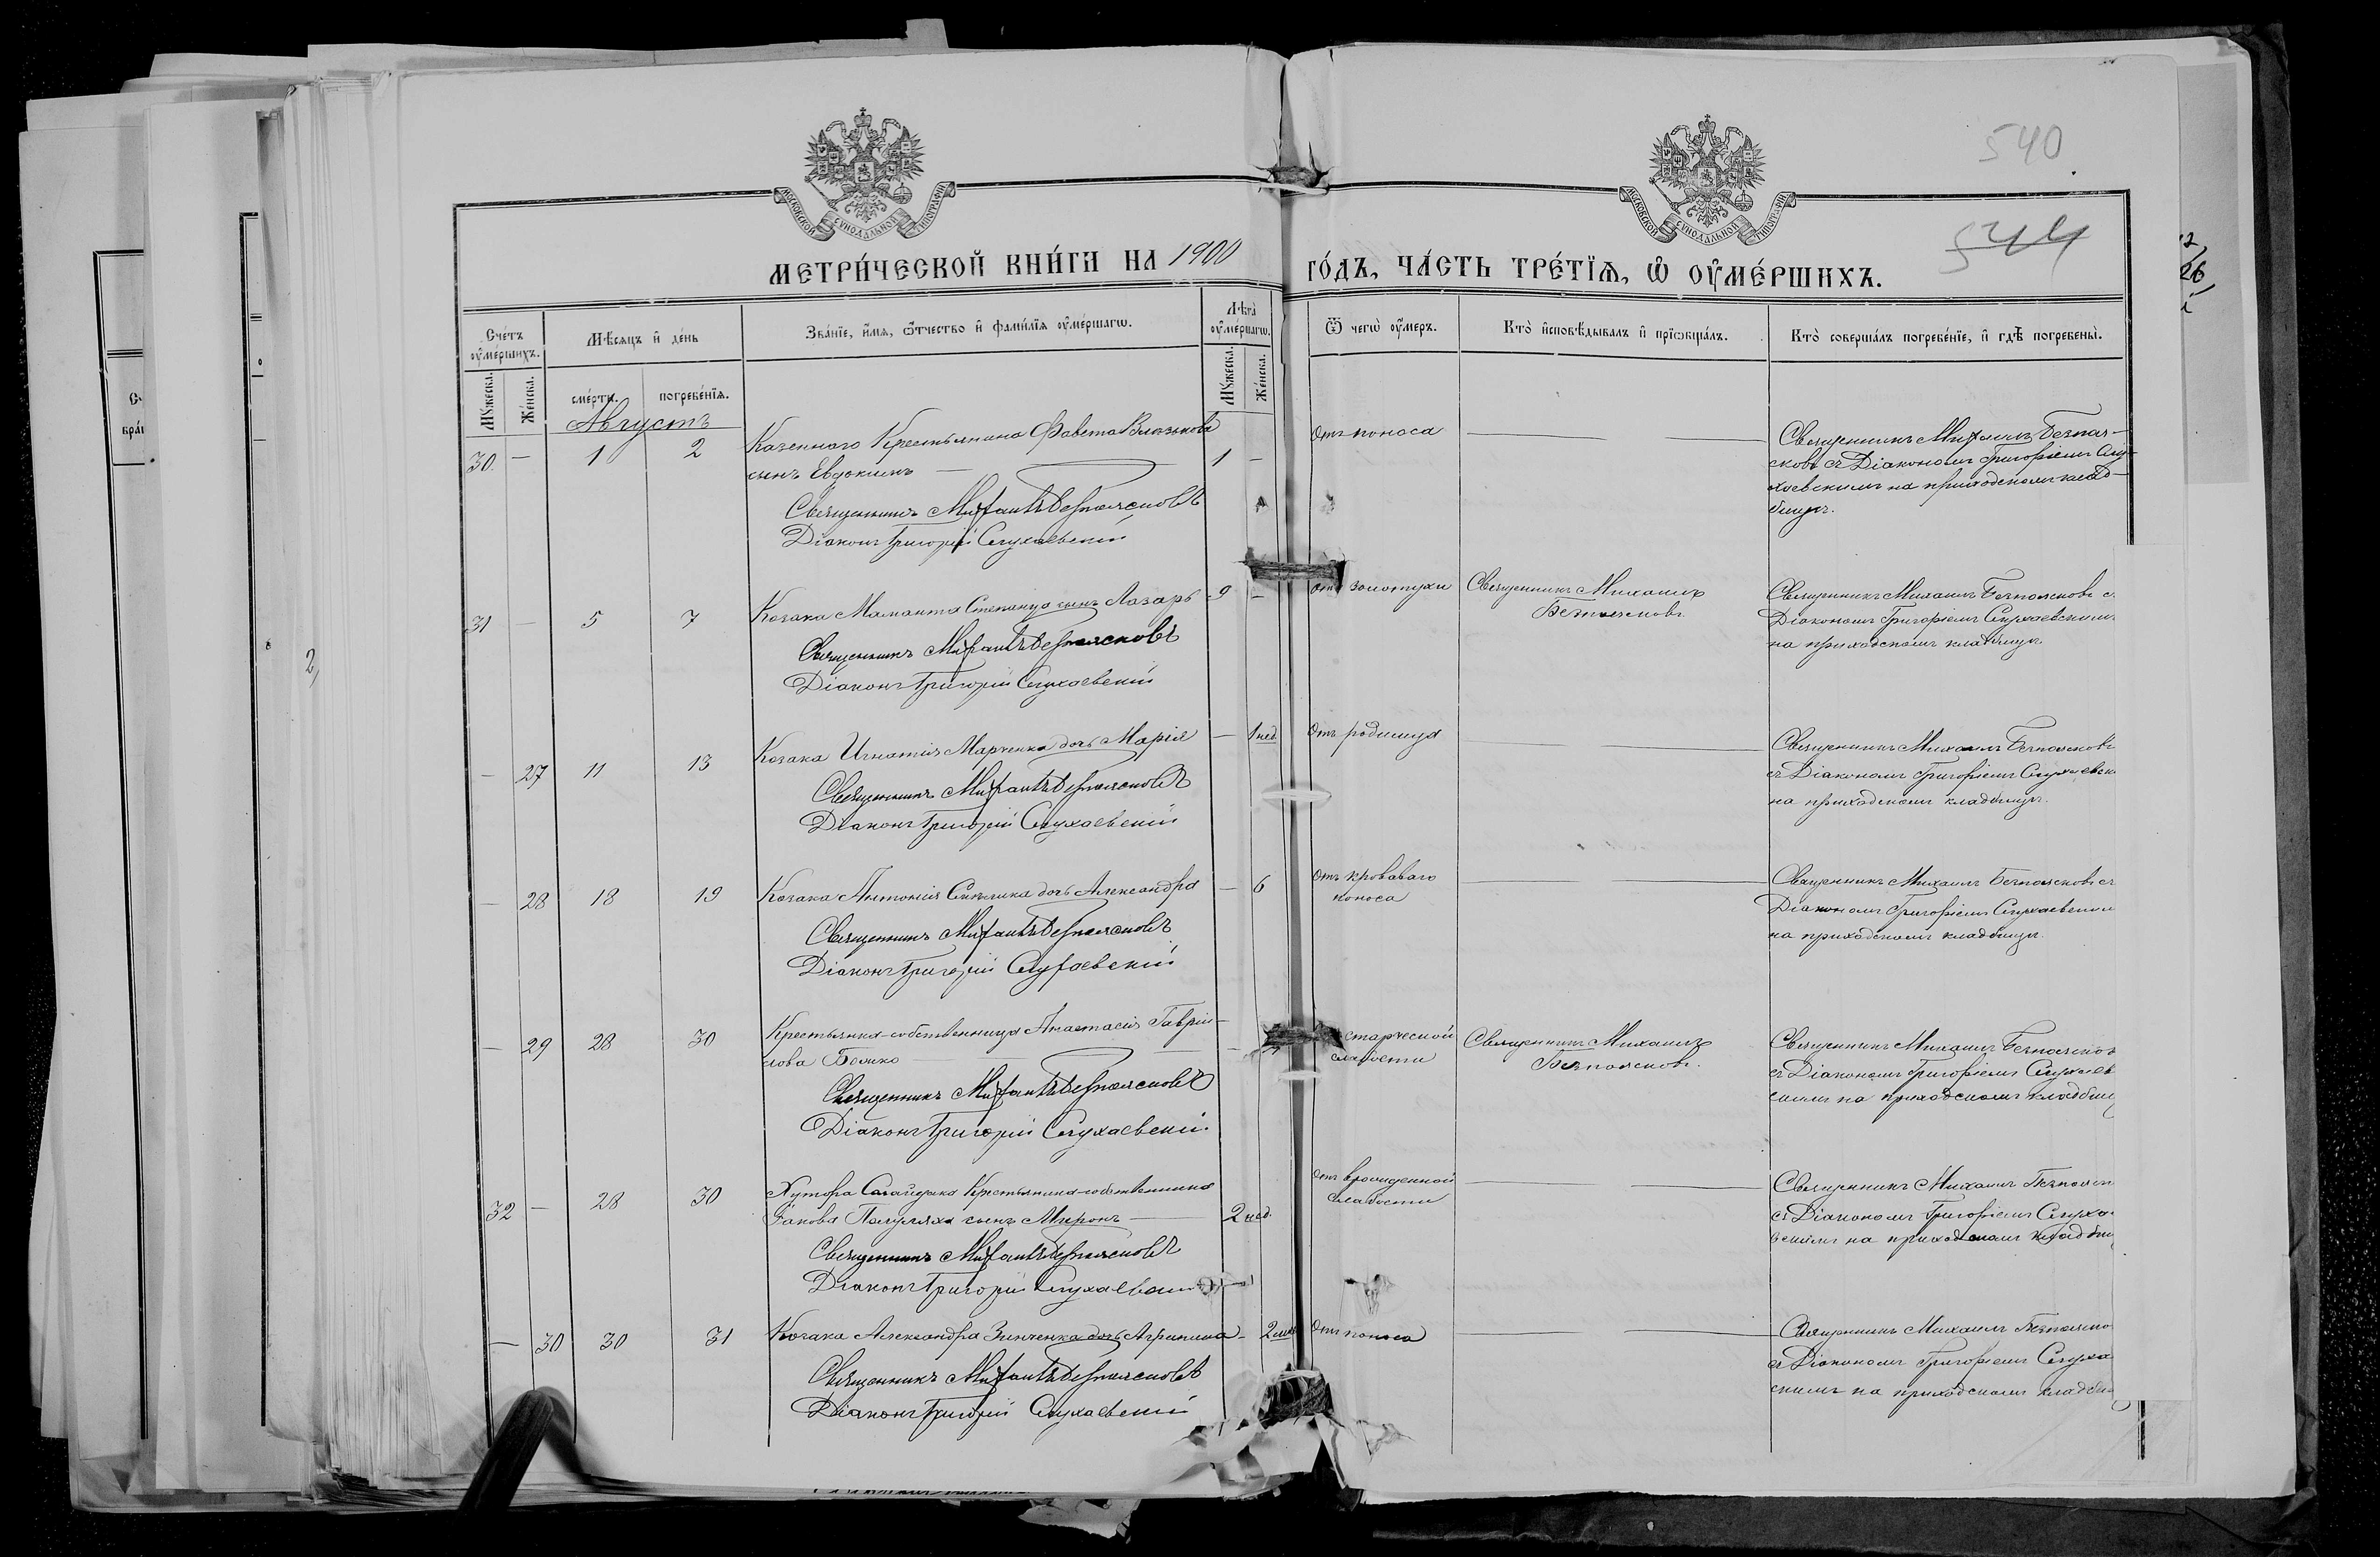 540
544
МОСКОВСКОЙ СѴНОДАЛЬНОЙ ТИПОГРАФІИ
МОСКОВСКОЙ СѴНОДАЛЬНОЙ ТИПОГРАФІИ
МЕТРИ́ЧЕСКОЙ КНИ́ГИ НА 1900 ГО́ДЪ, ЧА́СТЬ ТРЕ́ТІѦ, Ѡ ОУ҆МЕ́РШИХЪ.
Сче́тъ оу҆ме́ршихъ.
Мѣ́сяцъ и҆ де́нь
Зва́нїе, и҆́мѧ, ѻ҆́тчество и҆ фами́лїѧ оу҆ме́ршагѡ.
Лѣ́та оу҆ме́ршагѡ.
Ѿ чегѡ̀ оу҆́меръ.
Кто̀ и҆сповѣ́дывалъ и҆ прїѡбща́лъ.
Кто̀ соверша́лъ погребе́нїе, и҆ гдѣ̀ погребены̀.
Мꙋ́жеска.
Же́нска.
сме́рти.
погребе́нїѧ.
Мꙋ́жеска.
Же́нска.
Августъ
30. — 1 2 Казеннаго Крестьянина
сынъ Евдокимъ — 1 —
Священникъ Михаилъ Безпаясковъ
Діаконъ Григорій Слухаевскій
Отъ поноса —
Священникъ Михаилъ Безпая-
сковъ съ Діакономъ Григоріемъ Слу-
хаевскимъ на приходскомъ клад-
бищѣ.
31 — 5 7 Козака Маманта сынъ Лазарь 9 —
Священникъ Михаилъ Безпаясковъ
Діаконъ Григорій Слухаевскій
отъ золотухи
Священникъ Михаилъ
Безпаясковъ
Священникъ Михаилъ Безпаясковъ с
Діакономъ Григоріемъ Слухаевскимъ
на приходскомъ кладбищѣ.
— 27 11 13 Козака Игнатія Марченка дочь Марія — 1 нед.
Священникъ Михаилъ Безпаясковъ
Діаконъ Григорій Слухаевскій
Отъ родимца —
Священникъ Михаилъ Безпаясковъ
съ Діакономъ Григоріемъ Слухаевск
на приходскомъ кладбищѣ.
— 28 18 19 Козака Антонія дочь Александра — 6
Священникъ Михаилъ Безпаясковъ
Діаконъ Григорій Слухаевскій
Отъ кроваваго
поноса —
Священникъ Михаилъ Безпаясковъ съ
Діакономъ Григоріемъ Слухаевским
на приходскомъ кладбищѣ.
— 29 28 30 Крестьянка-собственница Анастасія Гаврiи-
лова Белико —
Священникъ Михаилъ Безпаясковъ
Діаконъ Григорій Слухаевскій
старческой
слабости
Священникъ Михаилъ
Безпаясковъ.
Священникъ Михаилъ Безпаясков
съ Діакономъ Григоріемъ Слухаев
скимъ на приходскомъ кладбищ
32 — 28 30 Хутора Сагайдака Крестьянина-собственника
Іакова сынъ Миронъ — 2 нед.
Священникъ Михаилъ Безпаясковъ
Діаконъ Григорій Слухаевскій
отъ врожденной
слабости —
Священникъ Михаилъ Безпаяс
съ Діакономъ Григоріемъ Слуха
вскимъ на приходскомъ кладбищ
— 30 30 31 Козака Александра Зинченка дочь Агрипина —
Священникъ Михаилъ Безпаясковъ
Діаконъ Григорій Слухаевскій
Отъ поноса —
Священникъ Михаилъ Безпаяско
съ Діакономъ Григоріемъ Слуха
скимъ на приходскомъ кладби